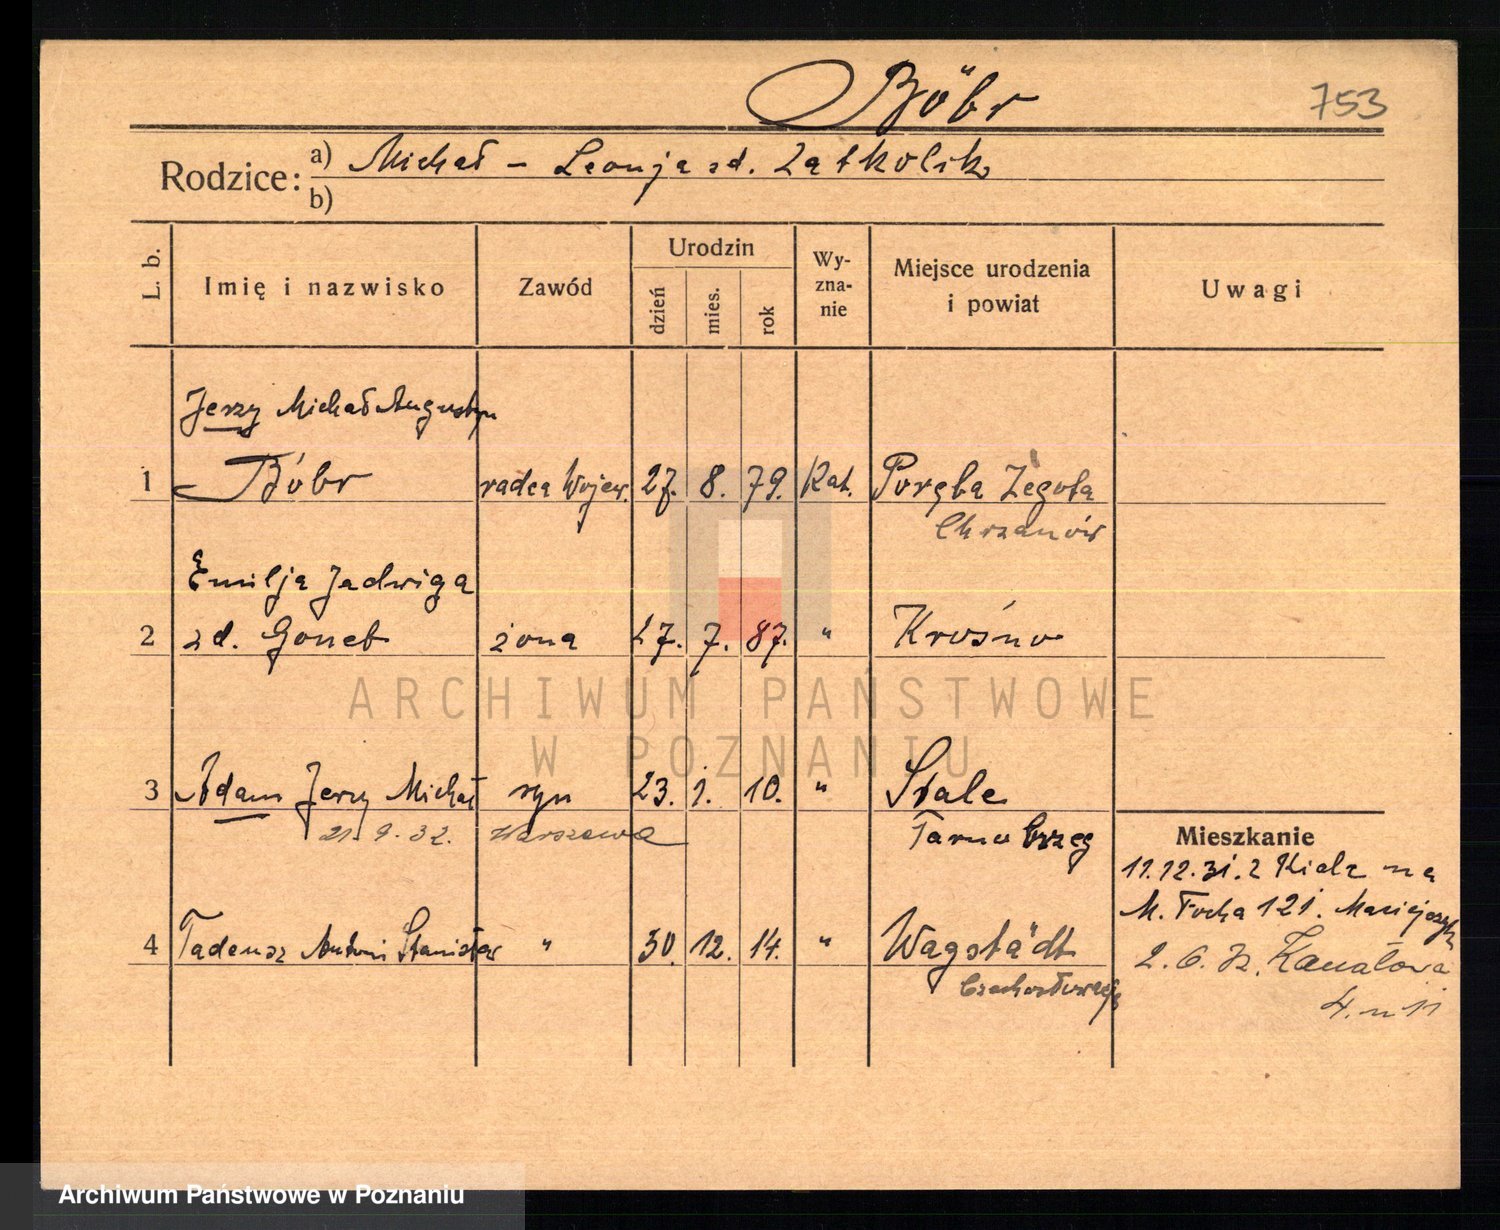 Böbr
753
Rodzice: a) Michał – Leonja zd. Zątkolik
b)
L. b. Imię i nazwisko Zawód Urodzin dzień mies. rok Wy-zna-nie Miejsce urodzenia i powiat Uwagi
Jerzy Michał Augustyn
1 Bóbr radca Wojew. 27. 8. 79. Kat. Poręba Żegota
Chrzanów
Emilja Jadwiga
2 zd. Gonet żona 27. 7. 87. " Krośno
3 Adam Jerzy Michał syn 23. 1. 10. " Stale
21. 9. 32. Warszawa Tarnobrzeg
Mieszkanie
11.12.31. z Kielc na
M. Focha 121.
4 Tadeusz Antoni Stanisław " 30. 12. 14. " Wagstädt
Czechosłowacja
2. 6. 32. Kanałowa
4. m 11
ARCHIWUM PAŃSTWOWE
W POZNANIU
Archiwum Państwowe w Poznaniu